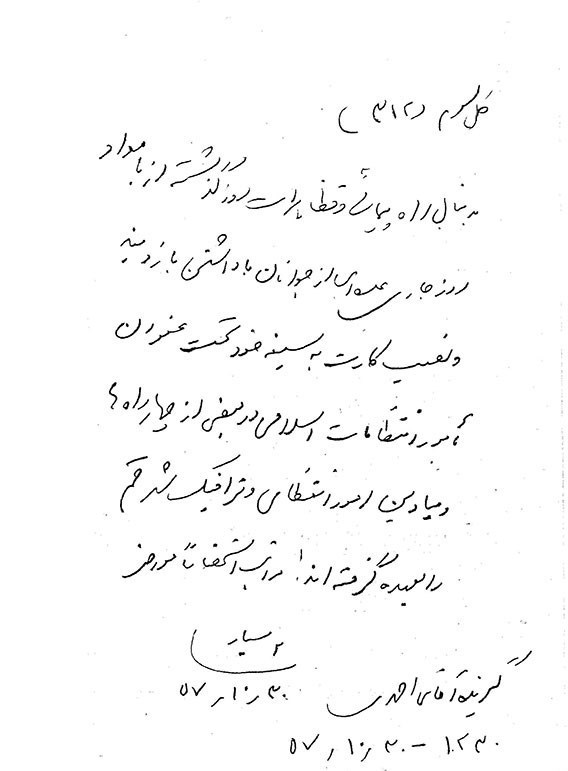 کل سوم (۳۱۲)
بدنبال راه پیمائی و تظاهرات روز گذشته از بامداد
روز جاری عده‌ای از جوانان با داشتن بازوبند
و نصب کارت به سینه خود تحت عنوان
مأمور انتظامات اسلامی در بعضی از چهارراه ها
و میادین امور انتظامی و ترافیک شهر قم
را بعهده گرفته اند. مراتب استحضاراً معروض
سیار
۵۷٫۱۰٫۳۰
گیرنده آقای احمدی
۱۰۳۰ – ۵۷٫۱۰٫۳۰